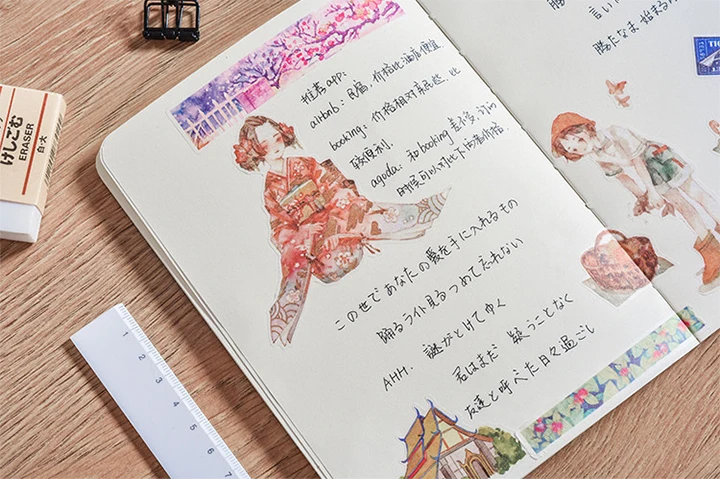 推荐app:
airbnb: 民宿, 价格比酒店便宜
booking: 价格相对亲民些, 比
较便利.
agoda: 和booking差不多, 订的
时候可以对比下两者价格.
この世であなたの愛を手に入れるもの
踊るライト見るつめて忘れない
AHH. 謎がとけてゆく
君はまだ 疑うことなく
友達と呼べた日々過ごし
言い
勝たなま 始まる
けしごむ
ERASER
白・大
1
2
3
4
5
6
7